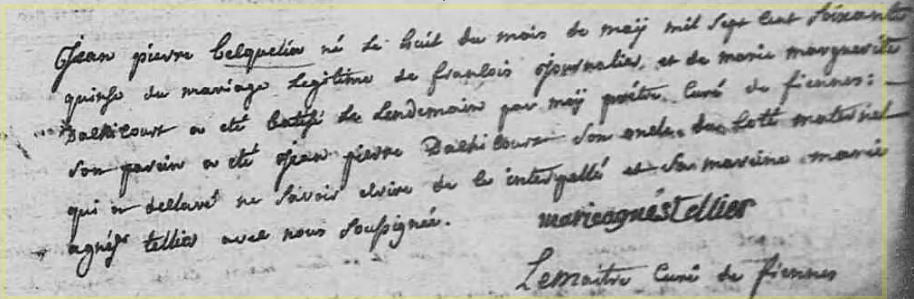 Jean pierre Celquelin né Le huit du mois de maÿ mil sept cent soixante
quinse du mariage Legitime de franlois journalier, et de marie marguerite
Dalhicourt a eté batisé Le Lendemain par moÿ prétre Curé de fiennes:
Son parein a eté Jean pierre Dalhicourt Son oncle du Coté maternel
qui a declaré ne Savoir ecrire de ce interpellé et Sa mareine marie
agnés tellier avec nous Soussignée.
marieagnéstellier
Lemaitre Curé de fiennes